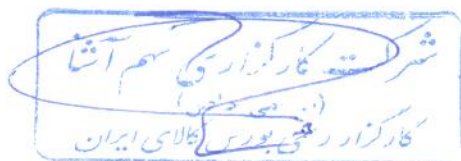 شرکت کارگزاری سهم آشنا
کارگزار رسمی بورس کالای ایران